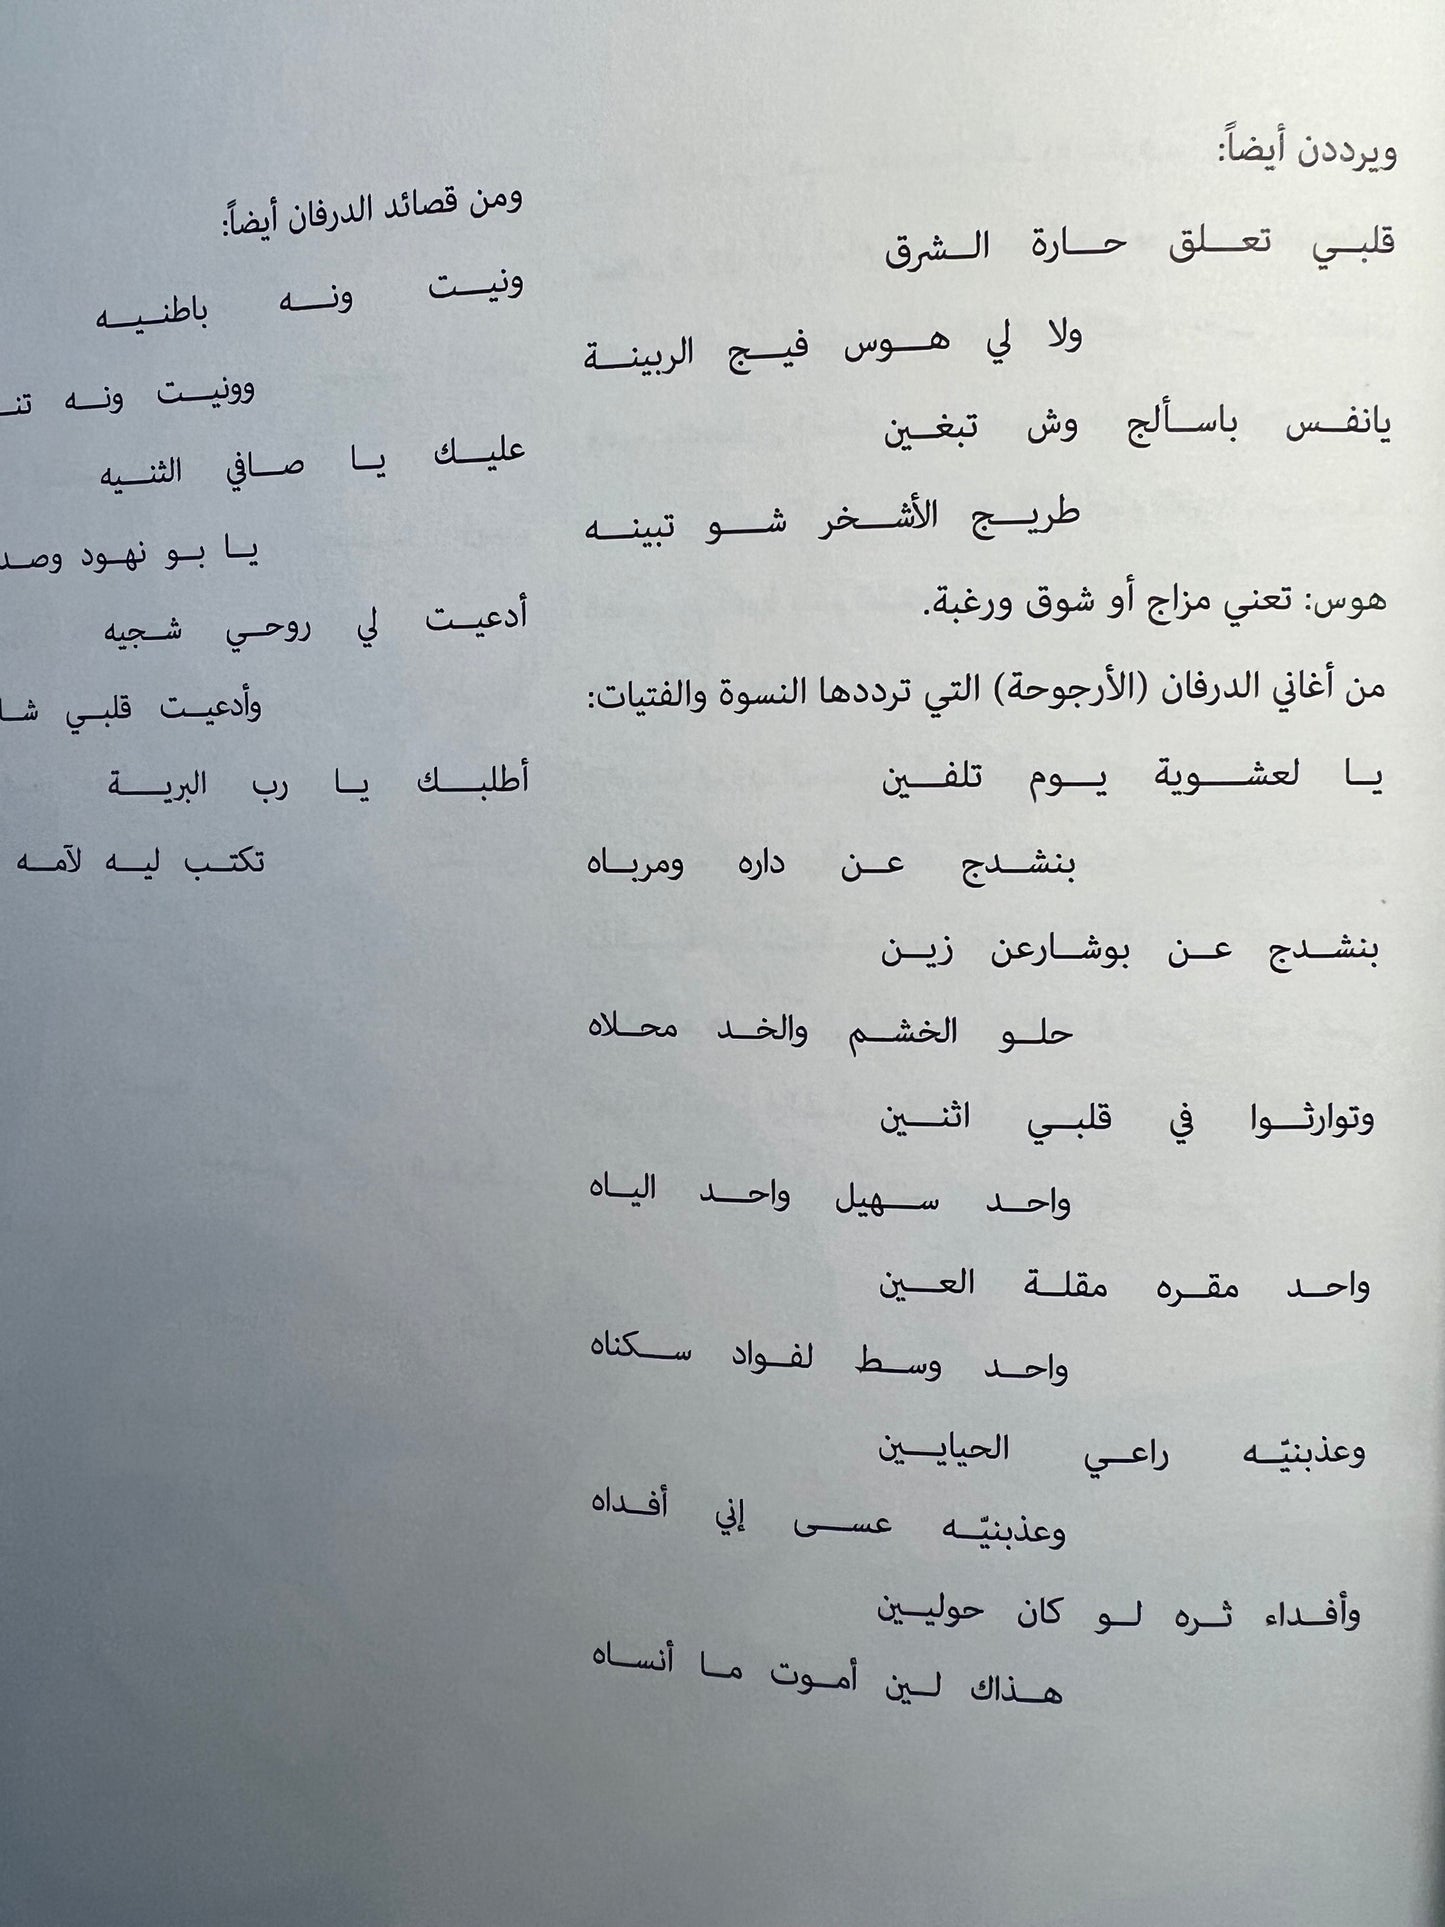 ويرددن أيضاً:
قلبي تعلق حارة الشرق
ولا لي هوس فيج الربينة
يانفس باسألج وش تبغين
طريج الأشخر شو تبينه
هوس: تعني مزاج أو شوق ورغبة.
من أغاني الدرفان (الأرجوحة) التي ترددها النسوة والفتيات:
يا لعشوية يوم تلفين
بنشدج عن داره ومرباه
بنشدج عن بوشارعن زين
حلو الخشم والخد محلاه
وتوارثوا في قلبي اثنين
واحد سهيل واحد الياه
واحد مقره مقلة العين
واحد وسط لفواد سكناه
وعذبنيّه راعي الحيايين
وعذبنيّه عسى إني أفداه
وأفداء ثره لو كان حوليين
هذاك لين أموت ما أنساه
ومن قصائد الدرفان أيضاً:
ونيت ونه باطنيه
وونيت ونه
عليك يا صافي الثنيه
يا بو نهود
أدعيت لي روحي شجيه
وأدعيت قلبي
أطلبك يا رب البرية
تكتب ليه لآمه